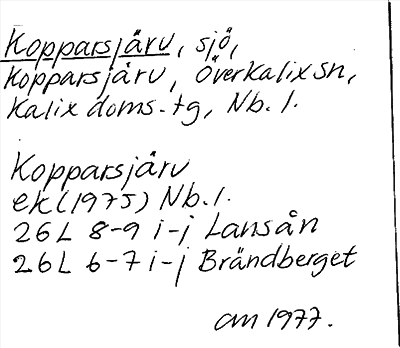 Kopparsjärv, sjö,
Kopparsjärv, Överkalix sn,
Kalix doms.tg, Nb. l.
Kopparsjärv
ek (1975) Nb. l.
26L 8-9 i-j Lansån
26L 6-7 i-j Brändberget
am 1977.